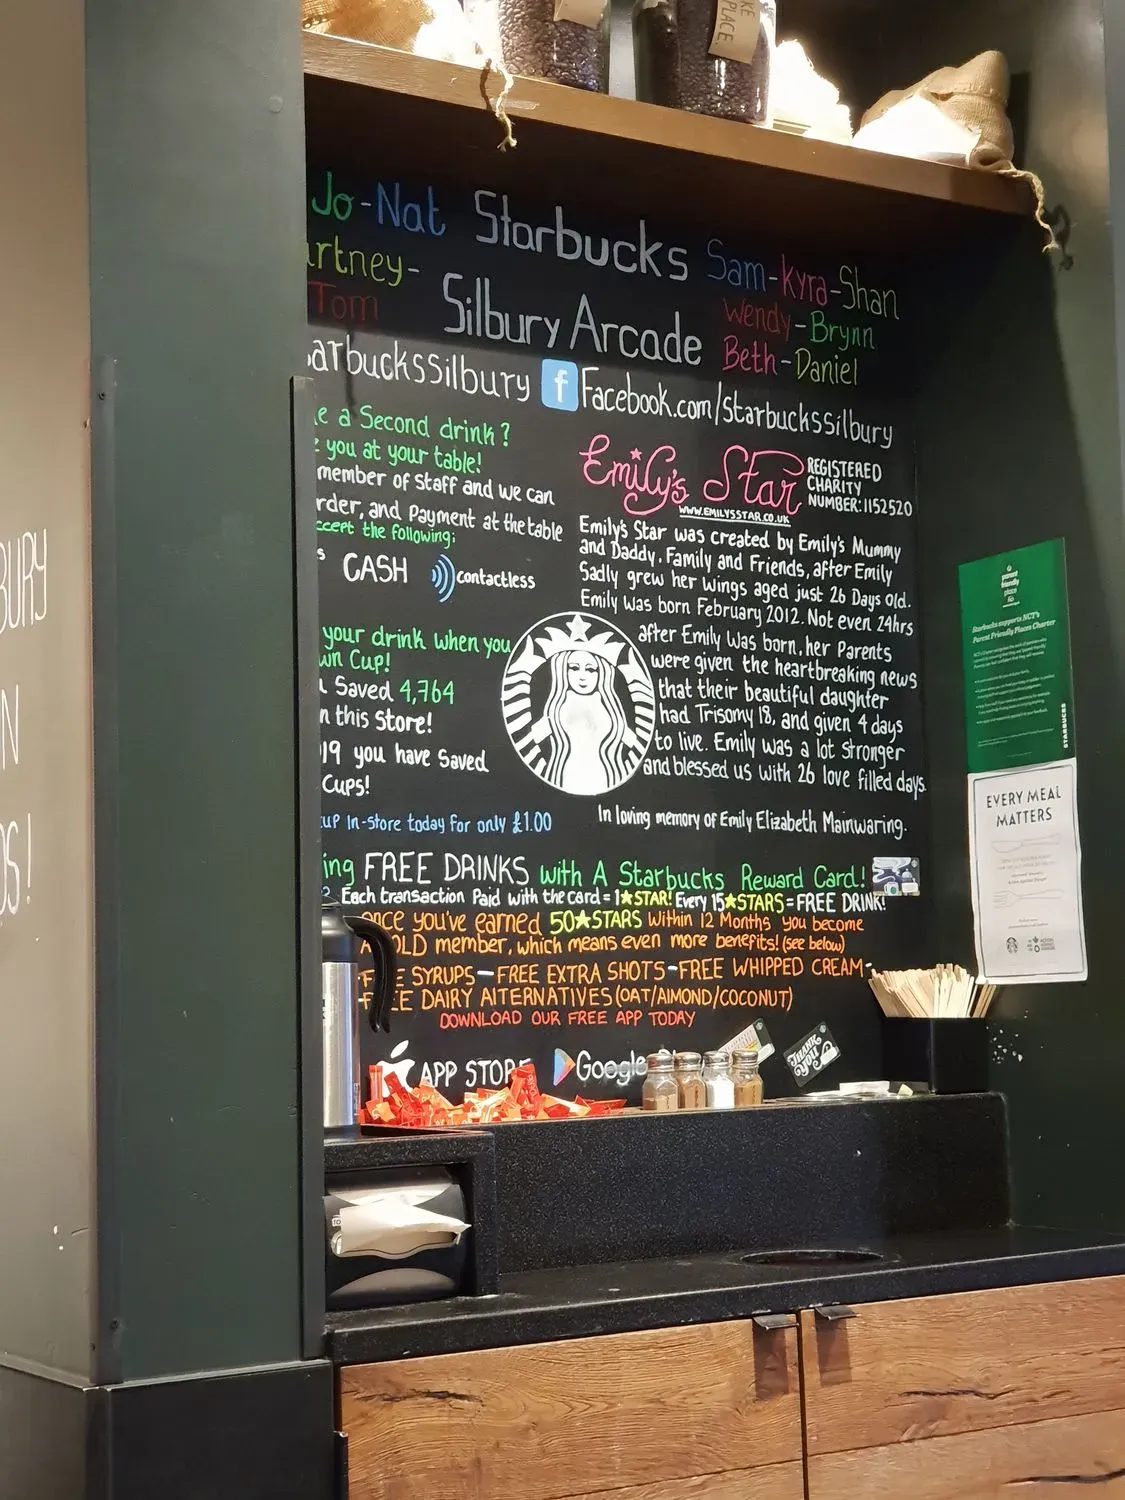 PLACE.
Jo-Nat Starbucks Sam-Kyra-Shan
rtney- Silbury Arcade Wendy-Brynn
Tom Beth-Daniel
arbucksSilbury f Facebook.com/StarbucksSilbury
e a Second drink?
you at your table!
member of Staff and we can
rder, and Payment at the table
ccept the following;
s CASH contactless
your drink when you
wn Cup!
Saved 4,764
n this Store!
19 you have Saved
Cups!
up In-store today for only £1.00
Emily's Star
REGISTERED
CHARITY
NUMBER: 1152520
WWW.EMILYSSTAR.CO.UK
Emily's Star was created by Emily's Mummy
and Daddy, Family and Friends, after Emily
Sadly grew her wings aged just 26 Days old.
Emily Was born February 2012. Not even 24hrs
after Emily Was born, her Parents
were given the heartbreaking news
that their beautiful daughter
had Trisomy 18, and given 4 days
to live. Emily was a lot stronger
and blessed us with 26 love filled days.
In loving memory of Emily Elizabeth Mainwaring.
ing FREE DRINKS with A Starbucks Reward Card!
Each transaction Paid with the card = 1★STAR! Every 15★STARS = FREE DRINK!
once you've earned 50★STARS Within 12 Months you become
A GOLD member, which means even more benefits! (see below)
FREE SYRUPS-FREE EXTRA SHOTS-FREE WHIPPED CREAM-
FREE DAIRY ALTERNATIVES (OAT/AlMOND/COCONUT)
DOWNLOAD OUR FREE APP TODAY
APP STORE Google
THANK
YOU
parent
friendly
place
Starbucks supports NCT's
Parent Friendly Places Charter
STARBUCKS
EVERY MEAL
MATTERS
BURY
N
DS!